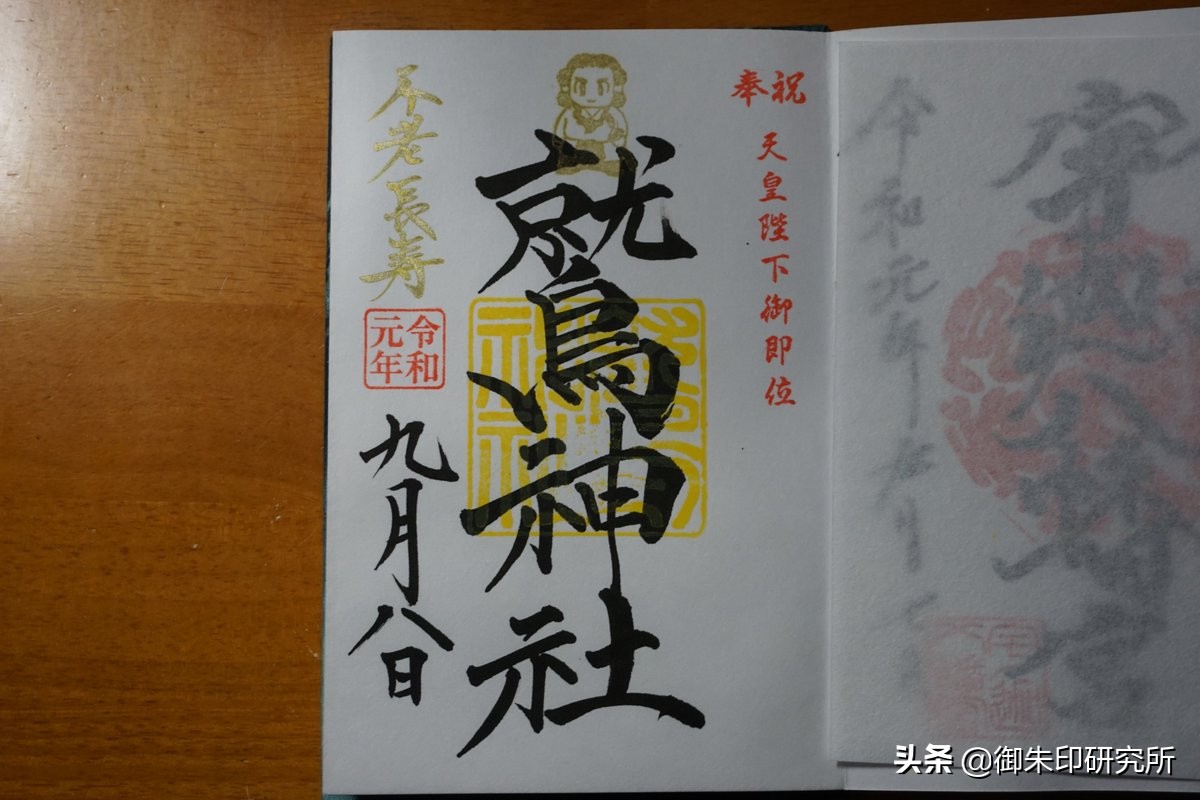 宇迦八幡宮
令和元年
奉祝
天皇陛下御即位
鷲神社
不老長寿
令和
元年
九月八日
头条 @御朱印研究所